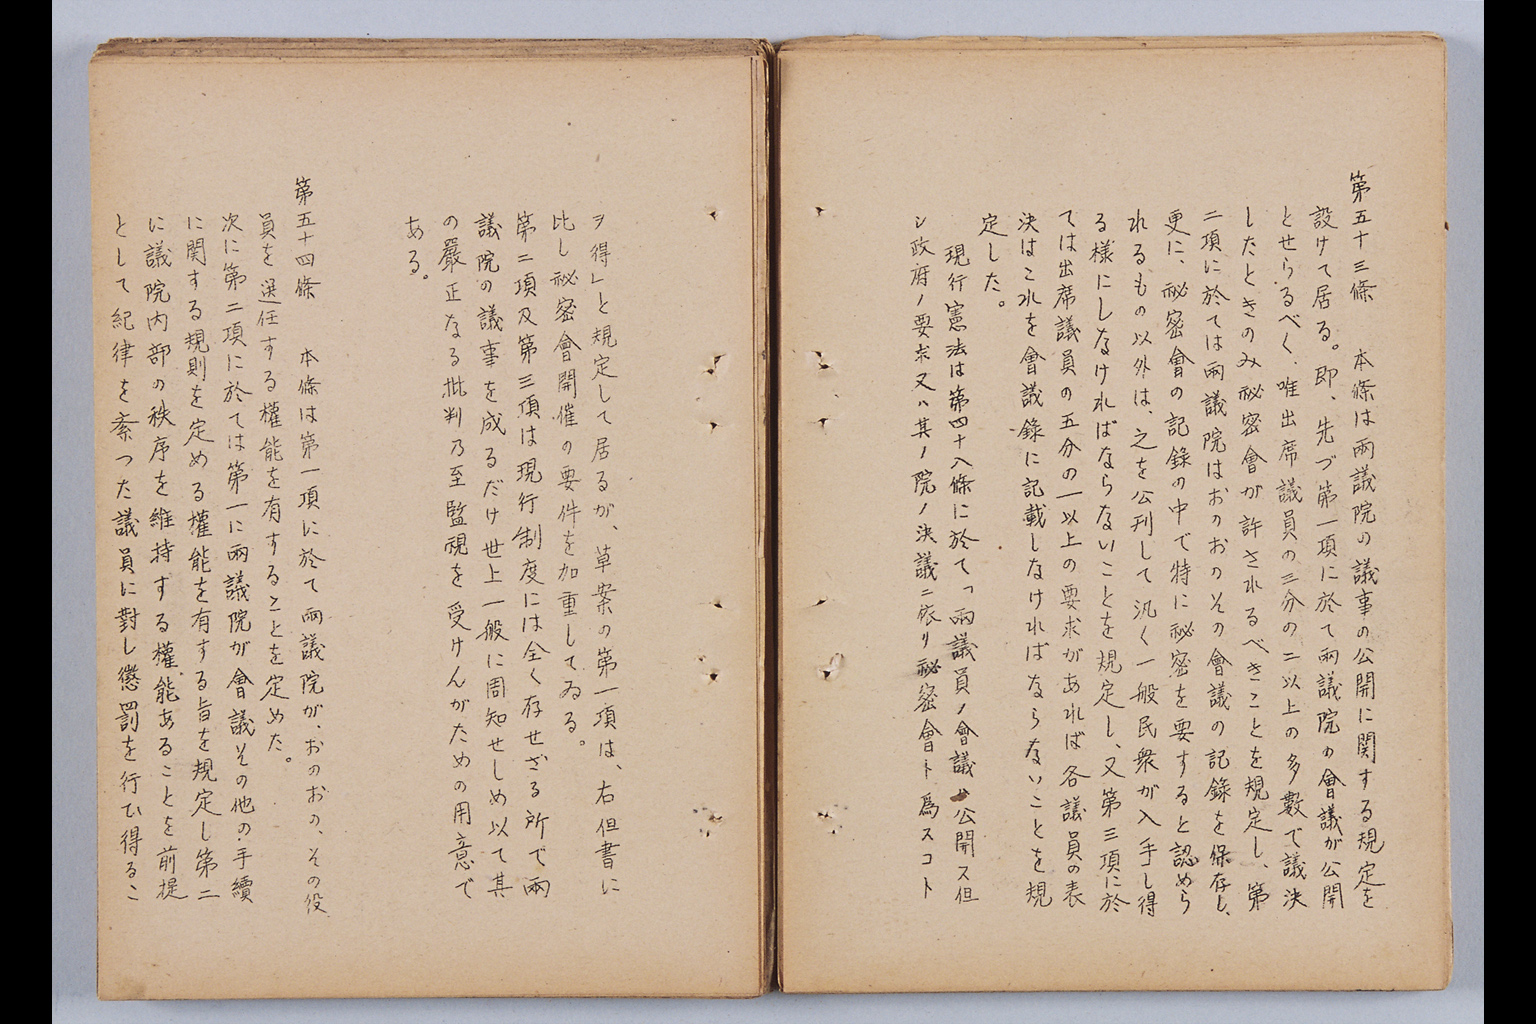 第五十三條　本條は兩議院の議事の公開に関する規定を
設けて居る。即、先づ第一項に於て兩議院の會議が公開
とせらるべく、唯出席議員の三分の二以上の多數で議決
したときのみ祕密會が許されるべきことを規定し、第
二項に於ては兩議院はおのおのその會議の記錄を保存し、
更に、祕密會の記錄の中で特に祕密を要すると認めら
れるもの以外は、之を公刊して汎く一般民衆が入手し得
る様にしなければならないことを規定し、又第三項に於
ては出席議員の五分の一以上の要求があれば各議員の表
決はこれを會議錄に記載しなければならないことを規
定した。
現行憲法は第四十八條に於て「兩議員ノ會議ハ公開ス但
シ政府ノ要求又ハ其ノ院ノ決議ニ依リ祕密會ト爲スコト
ヲ得」と規定して居るが、草案の第一項は、右但書に
比し祕密會開催の要件を加重してゐる。
第二項及第三項は現行制度には全く存せざる所で兩
議院の議事を成るだけ世上一般に周知せしめ以て其
の嚴正なる批判乃至監視を受けんがための用意で
ある。
第五十四條　本條は第一項に於て兩議院が、おのおの、その役
員を選任する權能を有することを定めた。
次に第二項に於ては第一に兩議院が會議その他の手續
に関する規則を定める權能を有する旨を規定し第二
に議院内部の秩序を維持する權能あることを前提
として紀律を紊つた議員に對し懲罰を行ひ得るこ